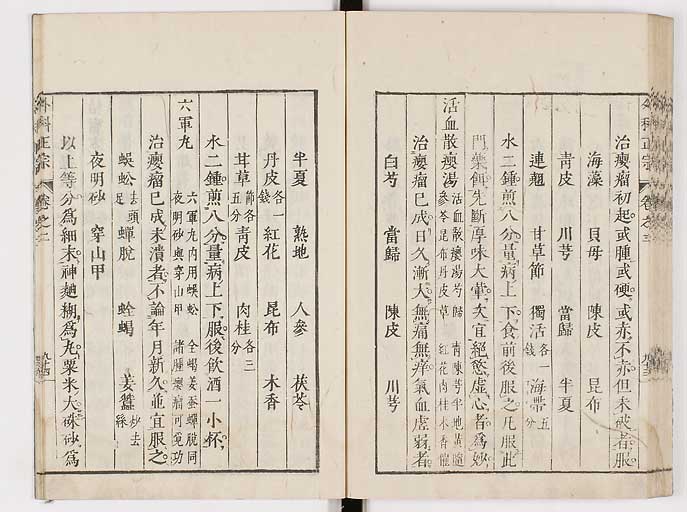 外科正宗 卷之三
治癭瘤初起或腫或硬或赤不赤但未破者服
海藻 貝母 陳皮 昆布
青皮 川芎 當歸 半夏
連翹 甘草節 獨活各一錢 海帶五分
水二鍾煎八分量病上下食前後服之凡服此
門藥餌先斷厚味大葷次宜絕慾虛心者為妙
活血散癭湯 活血散癭湯芍歸 青陳芎半地黃隨 參苓昆布丹皮草 紅花肉桂木香催
治癭瘤已成日久漸大無痛無痒氣血虛弱者
白芍 當歸 陳皮 川芎
半夏 熟地 人參 茯苓
丹皮各一錢 紅花 昆布 木香
甘草節各五分 青皮 肉桂各三分
水二鍾煎八分量病上下服後飲酒一小杯
六軍丸 六軍丸內用蜈蚣 全蝎姜蚕蟬脫同 夜明砂與穿山甲 諸腫癭瘤可奏功
治癭瘤已成未潰者不論年月新久並宜服之
蜈蚣去頭足 蟬脫 全蝎 姜蠶炒去絲
夜明砂 穿山甲
以上等分為細末神麯糊為丸粟米大硃砂為
外科正宗 卷之三